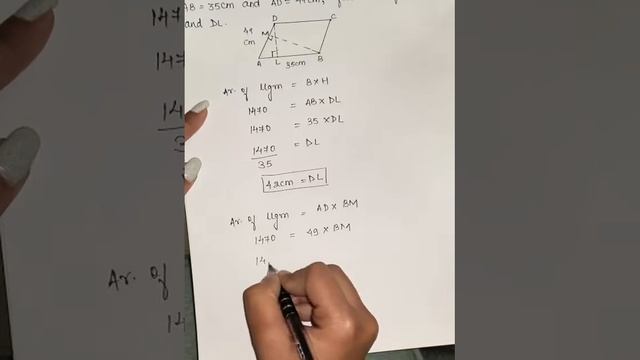 AB = 35cm and AD = 49cm,
and DL.
D
C
49
cm
M
A
L
B
35cm
Ar. of llgm = B×H
1470 = AB × DL
1470 = 35 × DL
1470/35 = DL
42cm = DL
Ar. of llgm = AD × BM
1470 = 49 × BM
14